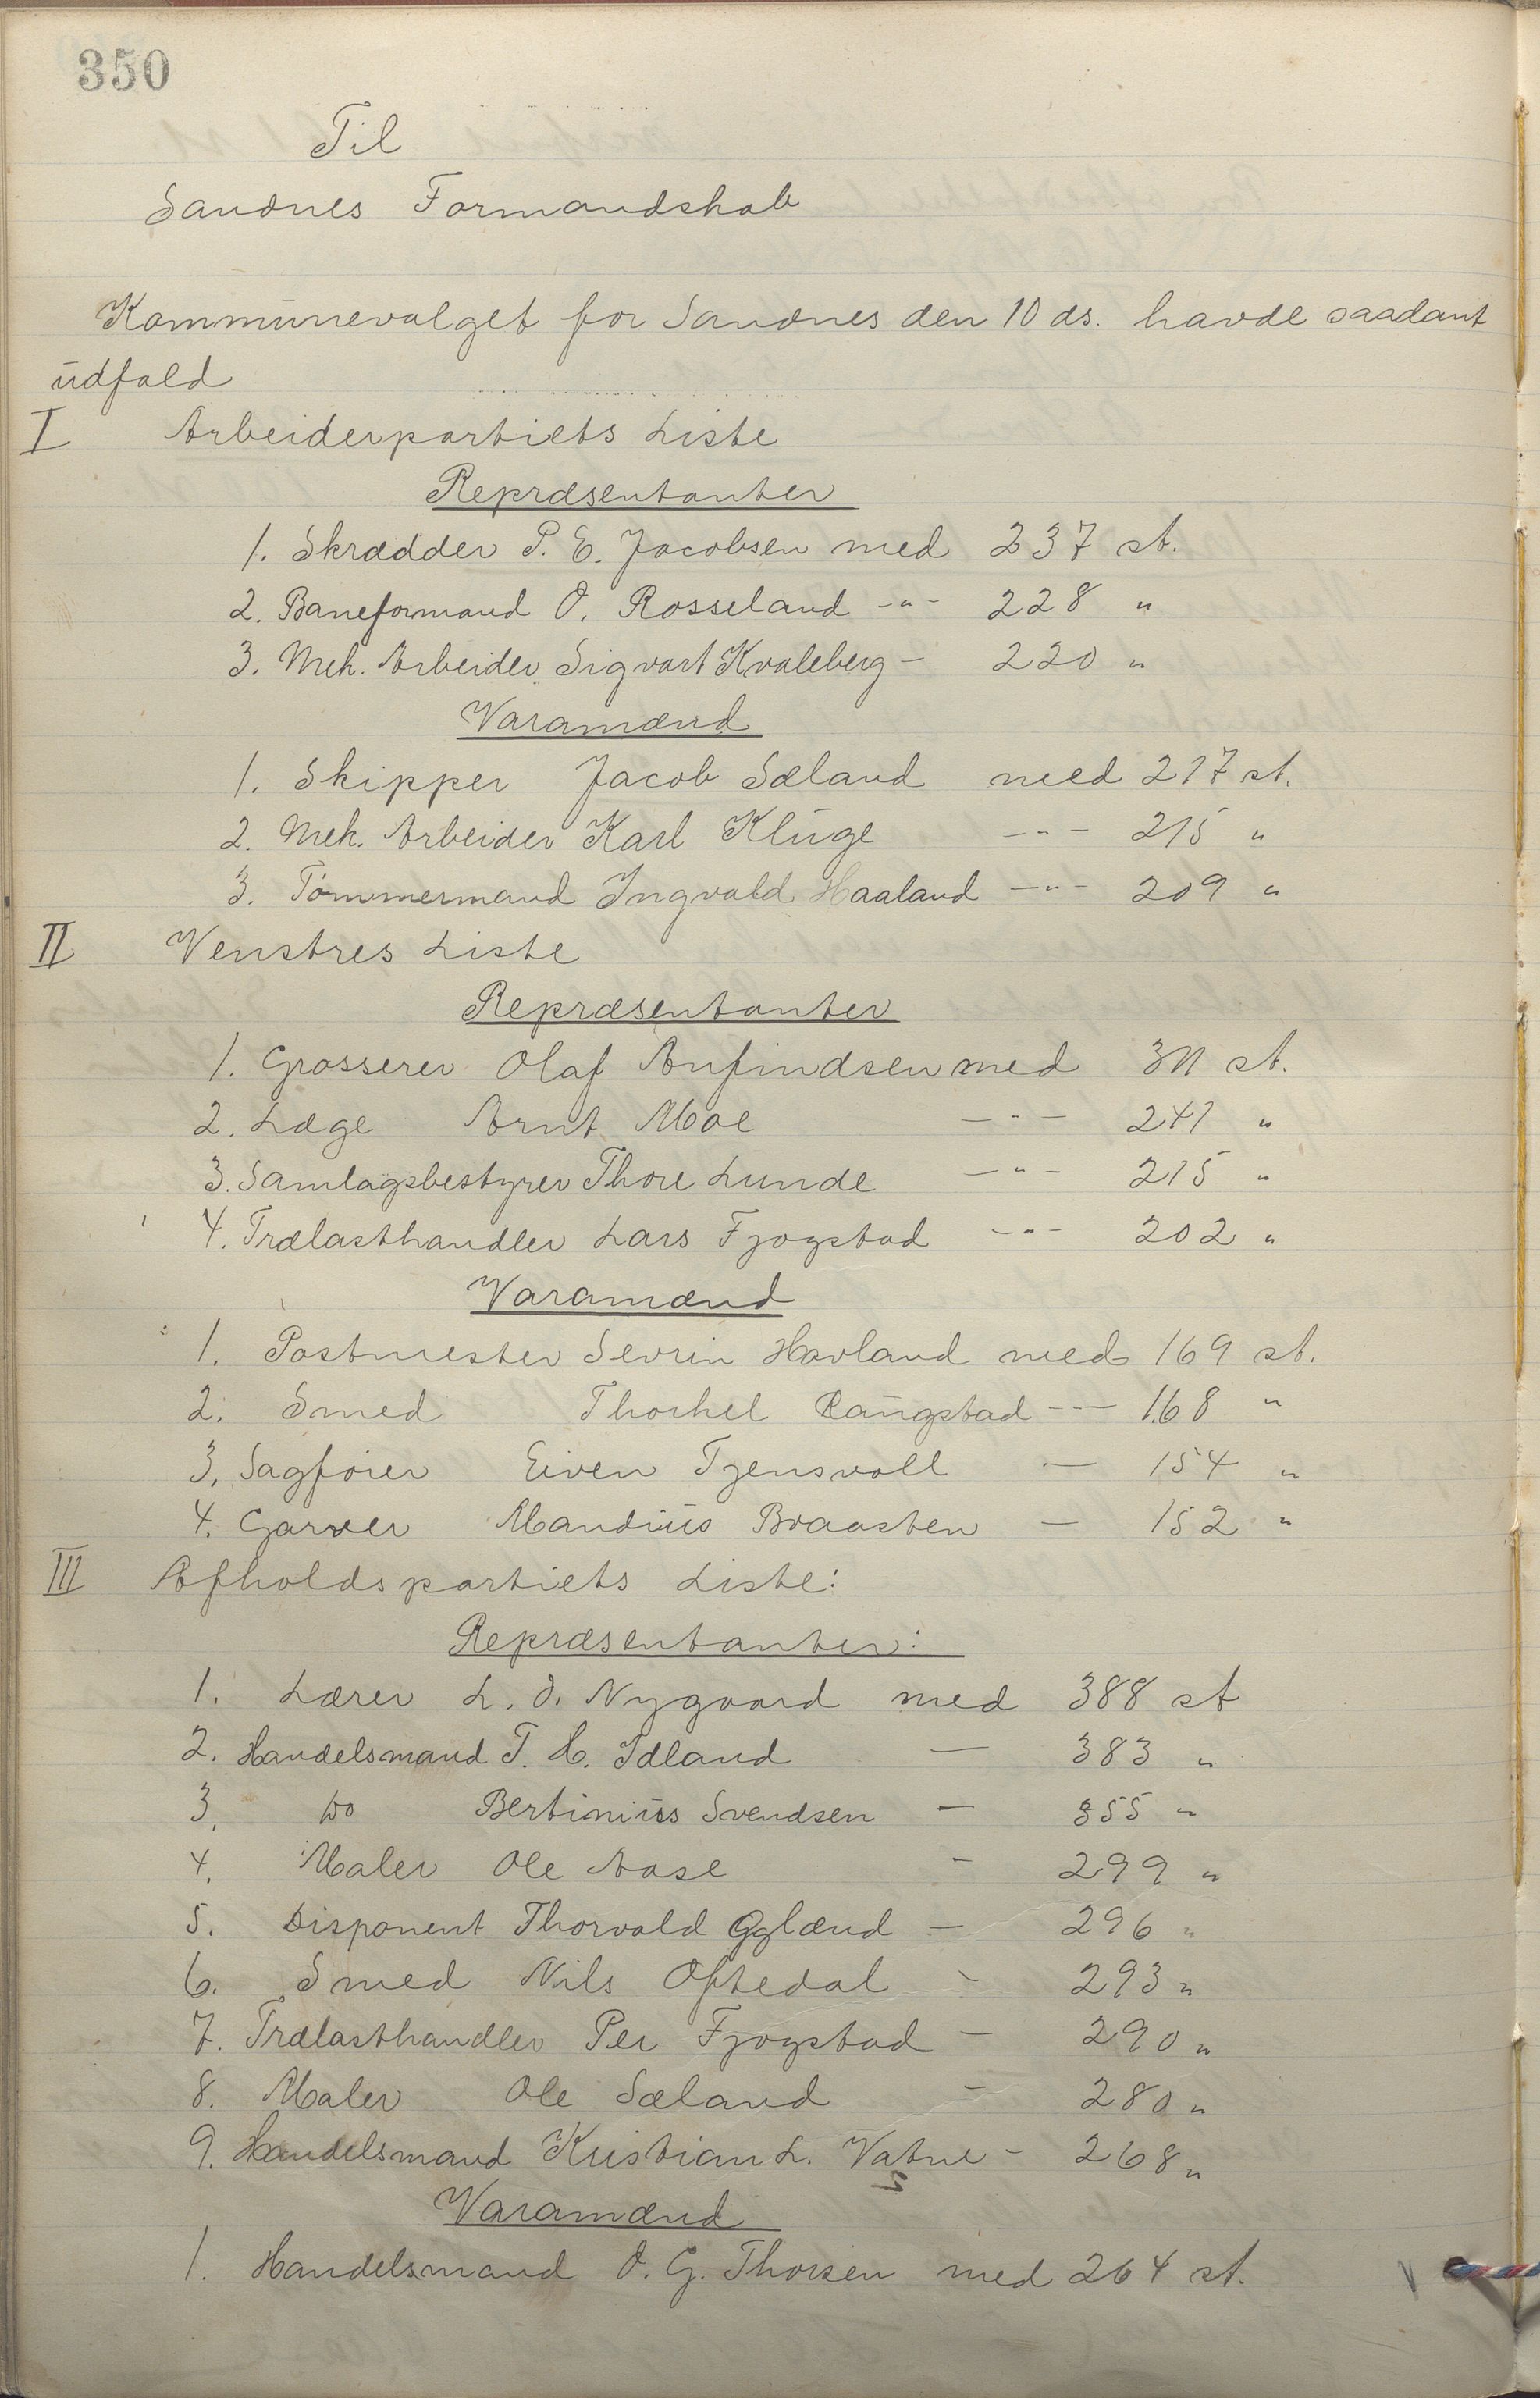 350
Til
Sandnes Formandskab
Kommunevalget for Sandnes den 10 ds. havde saadant
udfald
I Arbeiderpartiets Liste
Repræsentanter
1. Skrædder P. E. Jacobsen med 237 st.
2. Baneformand O. Rosseland -"- 228 "
3. Mek. Arbeider Sigvart Kvaleberg - 220 "
Varamænd
1. Skipper Jacob Sæland med 217 st.
2. Mek. Arbeider Karl Kluge -"- 215 "
3. Tømmermand Ingvald Haaland -"- 209 "
II Venstres Liste
Repræsentanter
1. Grosserer Olaf Anfindsen med 311 st.
2. Læge Arnt Moe -"- 241 "
3. Samlagsbestyrer Thore Lunde -"- 215 "
4. Trælasthandler Lars Fjogstad -"- 202 "
Varamænd
1. Postmester Sevrin Havland med 169 st.
2. Smed Thorkel Raugstad -"- 168 "
3. Sagfører Eiven Tjensvoll - 154 "
4. Garver Mandius Braasten - 152 "
III Afholdspartiets Liste:
Repræsentanter:
1. Lærer L. O. Nygaard med 388 st
2. Handelsmand T. H. Idland - 383 "
3. Do Bertinius Svendsen - 355 "
4. Maler Ole Aase - 299 "
5. Disponent Thorvald Oglænd - 296 "
6. Smed Nils Oftedal - 293 "
7. Trælasthandler Per Fjogstad - 290 "
8. Maler Ole Sæland - 280 "
9. Handelsmand Kristian L. Vatne - 268 "
Varamænd
1. Handelsmand O. G. Thorsen med 264 st.